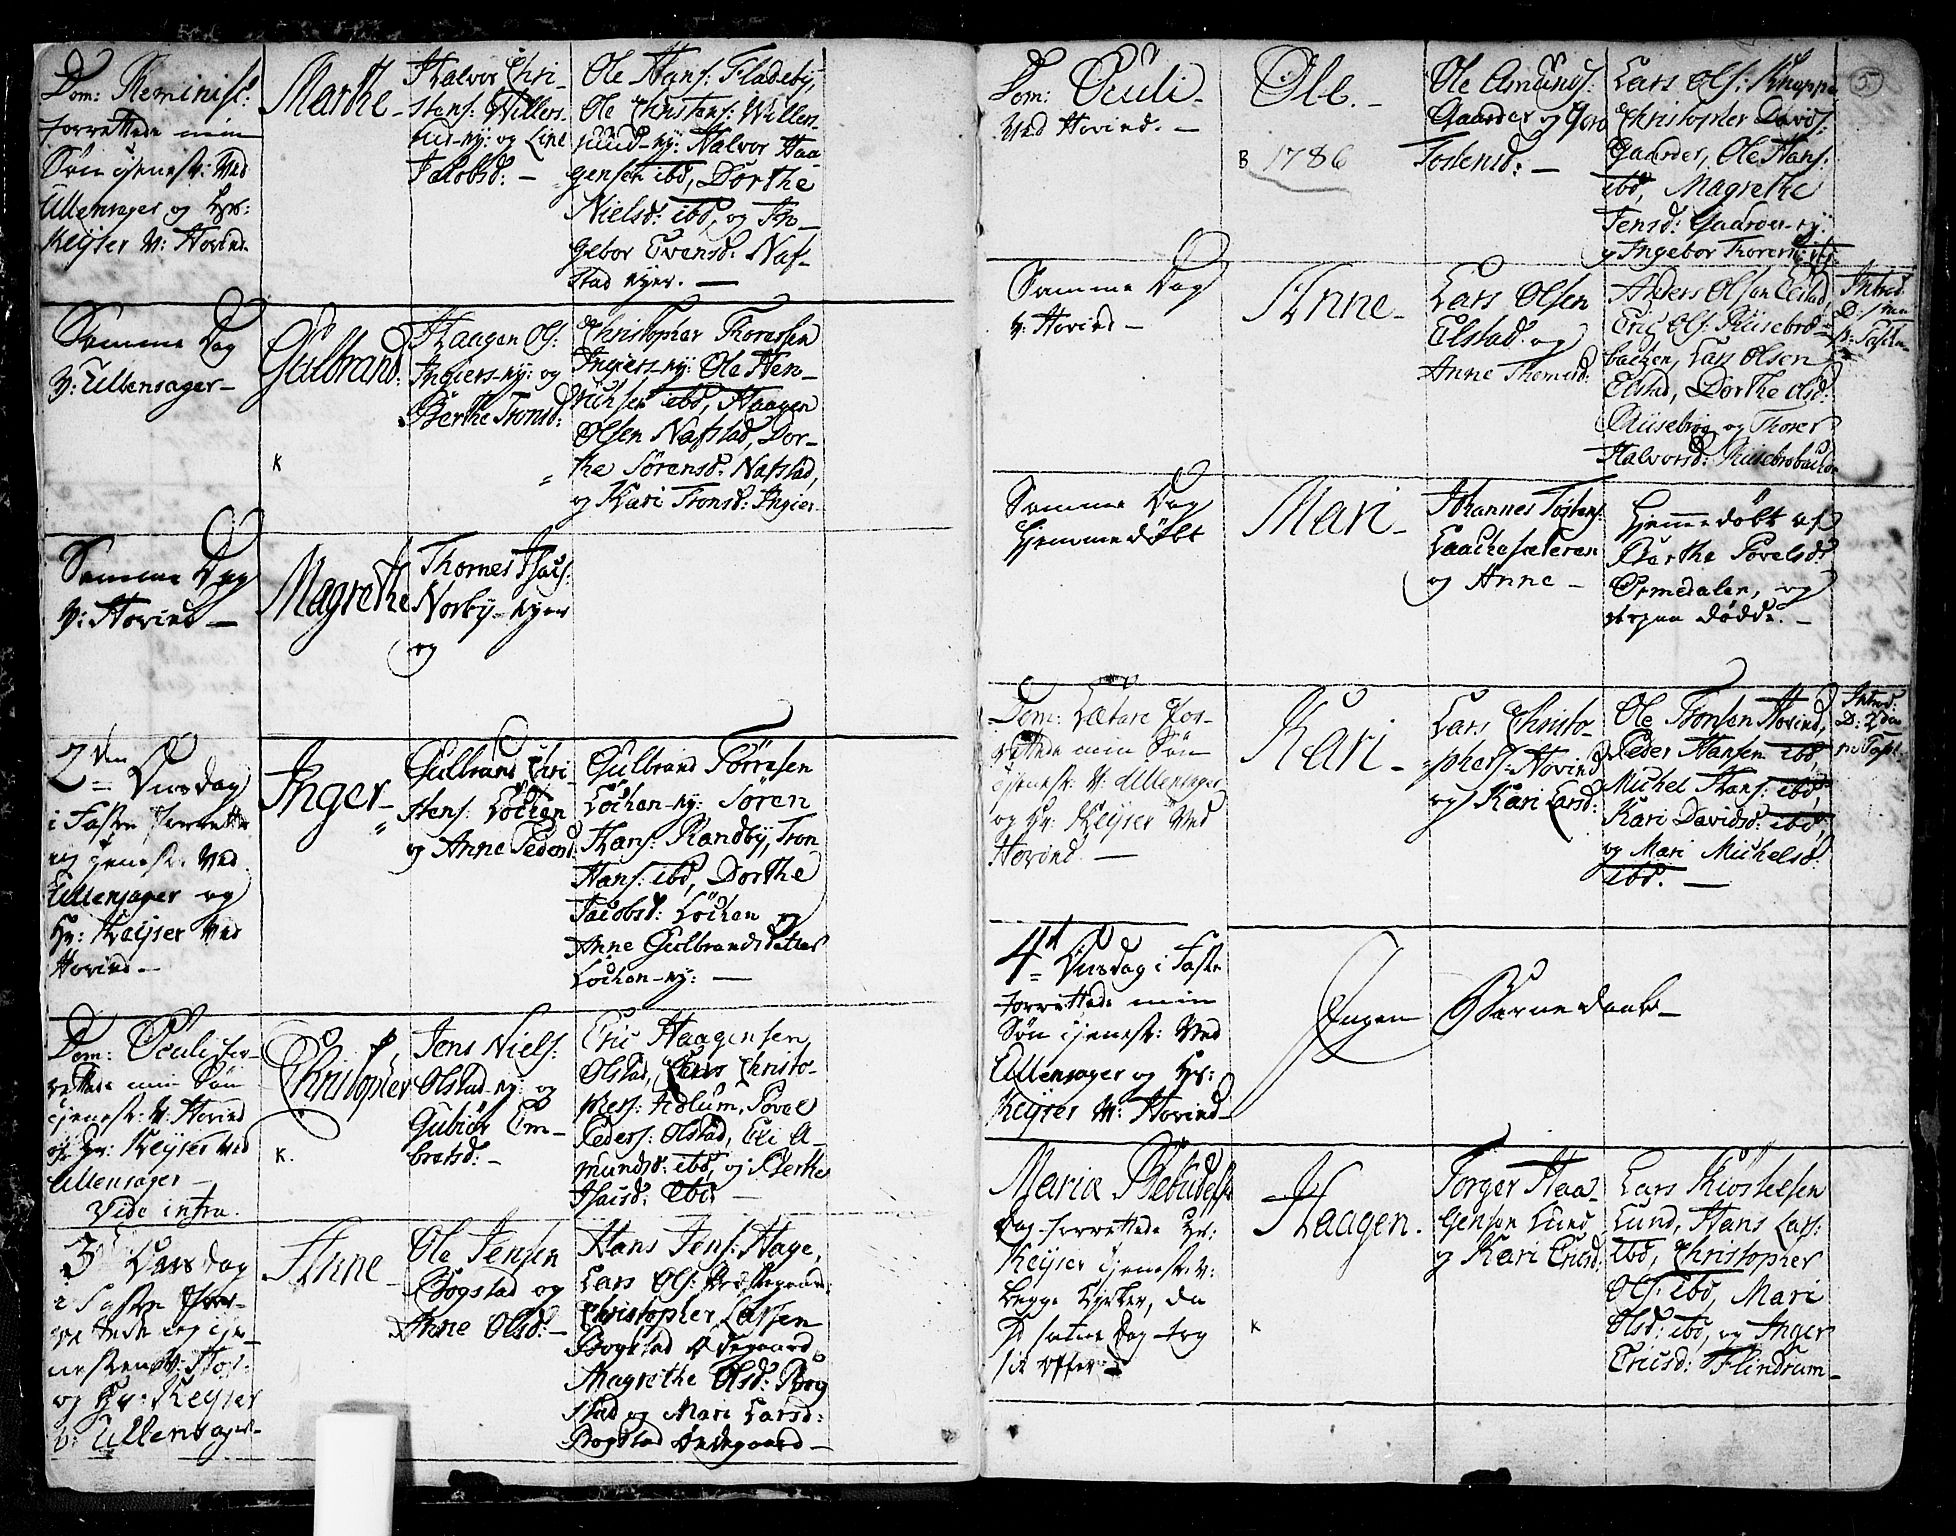 Dom: Reminisc:
forrettede min
Søn tjenest: ved
Ullensager og Hr:
Keyser v: Hovind.
Marthe
Halvor Chri-
stens: Willers-
rud-ny: og Line
Jacobsd: —
Ole Hans: Fladeby,
Ole Christens: Willers-
ruud-ny: Halvor Haa
gensen ibd, Dorthe
Nielsd: ibd, og In-
gebor Evensd: Naf-
stad nyer. —
Samme Dag
v: Ullensager —
Gulbrand:
K
Haagen Ols:
Ingiers-ny: og
Berthe Tronsd:
Christopher Thoressen
Ingiers-ny: Ole Hen-
richsen ibd, Haagen
Olsen Nafstad, Dor-
the Sørensd: Nafstad,
og Kari Tronsd: Ingier
Samme Dag
v: Hovind —
Magrethe
Thomes Isacs:
Norby-nyer
og
2den Onsdag
i Faste forrette
jeg tjenest: ved
Ullensager og
Hr: Keijser ved
Hovind —
Inger —
Gulbrand Chri-
stens: Løchen
og Anne Pedersd:
Gulbrand Torresen
Løchen-ny: Søren
Hans: Randby, Tron
Hans: ibd, Dorthe
Jacobsd: Løchen og
Anne GulbrandsDatter
Løchen-ny: —
Dom: Oculi for-
rettede min Søn
tjenest: v: Hovind
og Hr: Keyser ved
Ullensager —
Vide infra.
Christopher
K.
Jens Niels:
Olstad-ny: og
Gubiør Em-
bretsd: —
Eric Haagensen
Olstad, Christo-
phers: Adlum, Povel
Peders: Olstad, Eli A-
mundsd: ibd, og Berthe
Isacsd: ibd: —
3die Onsdag
i Faste forr-
rettede jeg tje-
nesten v: Hov:
og Hr: Keyser
v: Ullensager —
Anne —
Ole Jensen
Bogstad og
Anne Olsd: —
Hans Jens: Hage,
Lars Ols:
Christopher Larsen
Bogstad Ødegaard
Magrethe Olsd: Bog
stad og Mari Larsd:
Bogstad Ødegaard —
Dom: Oculi —
ved Hovind. —
Ole. —
B 1786
Ole Amunds:
Gaarder og
Tostensd: —
Lars Ols: Knappe
Christopher Davids:
Gaarder, Ole Hans:
ibd, Magrethe
Jensd: Gaarder-ny:
og Ingebor Thoresd: ibd.
5
Samme Dag
v: Hovind —
Anne —
Lars Olsen
Elstad og
Anne Thomesd:
Anders Olsen Elstad
Eric Ols: Riisebro-
bachen, Lars Olsen
Elstad, Dorthe Olsd:
Riisebroe og Thorer
Halvorsd: Riisebrobachen
Introd:
Samme Dag
Hjemmedøbt
Mari —
Johannes Tostens:
og Anne —
Hjemmedøbt af
Berthe Povelsd:
Ormedalen, og
døde. —
Dom: Lætare for-
rettede min Søn
tjenest: v: Ullensager
og Hr: Keyser ved
Hovind. —
Kari —
Lars Christo-
phers: Hovind
og Kari Larsd:
Ole Tronsen Hovind,
Peder Hansen ibd,
Michel Hans: ibd,
Kari Davidsd: ibd,
og Mari Michelsd:
ibd. —
Introd:
4de Onsdag i Faste
forrettede min
Søn tjenest: ved
Ullensager og Hr:
Keyser v: Hovind —
Ingen Barnedaab —
Mariæ Bebudelses
Dag forrettede Hr:
Keyser tjenest: v:
begge Kirker, da
samme Dag tog
sit Offer —
Haagen.
K
Torger Haa-
gensen Lund
og Kari Ericsd:
Lars Kiøstelsen
Lund, Hans Lars:
ibd, Christopher
Ols: ibd, Mari
Olsd: ibd, og Inger
Ericsd: Flindrum —